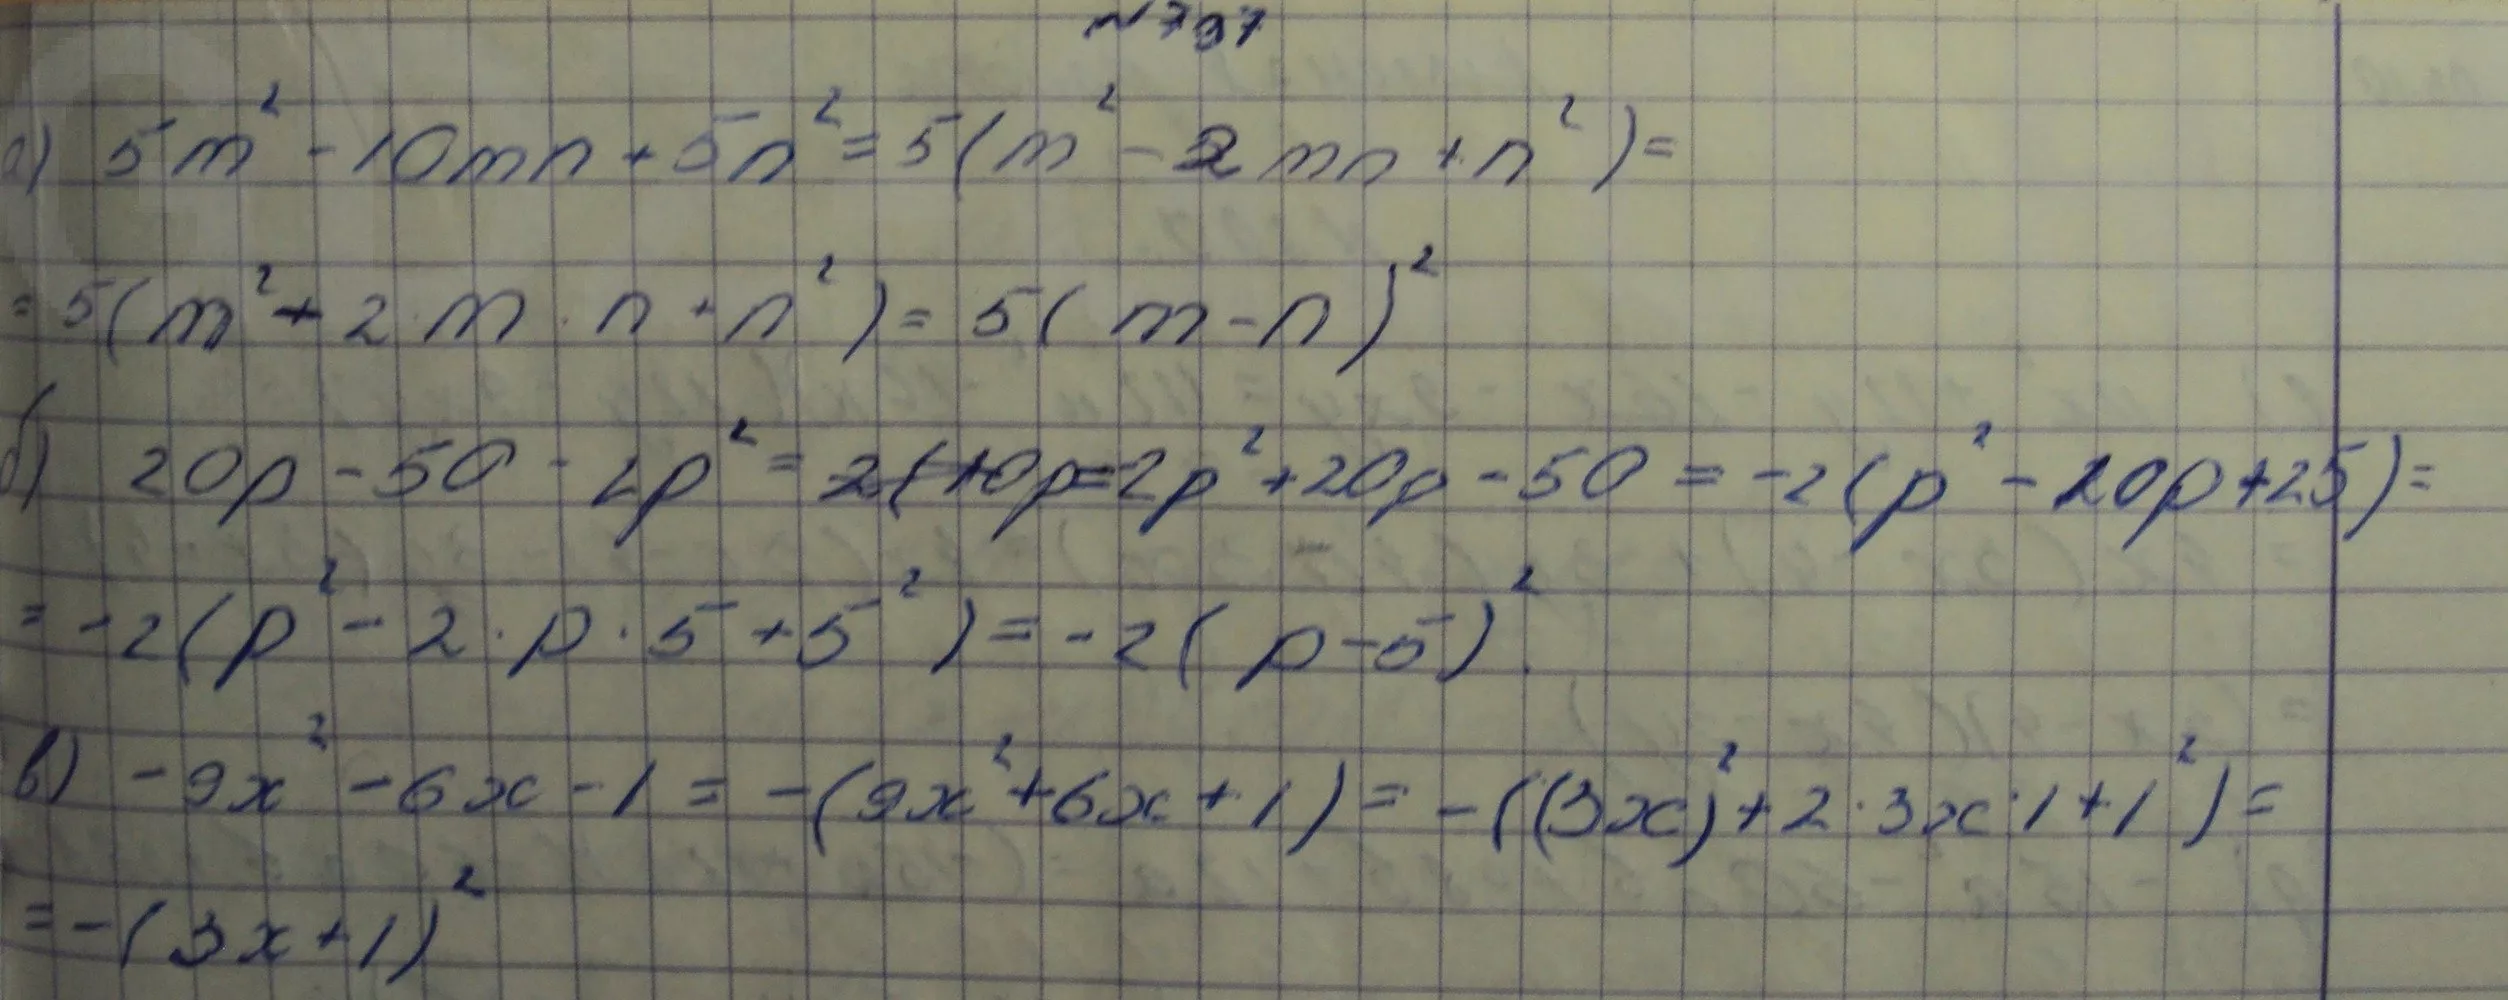 №797
а) 5m² - 10mn + 5n² = 5(m² - 2mn + n²) =
= 5(m² + 2·m·n + n²) = 5(m - n)²
б) 20p - 50 - 2p² = -2p² + 20p - 50 = -2(p² - 10p + 25) =
= -2(p² - 2·p·5 + 5²) = -2(p - 5)².
в) -9x² - 6x - 1 = -(9x² + 6x + 1) = -((3x)² + 2·3x·1 + 1²) =
= -(3x + 1)²